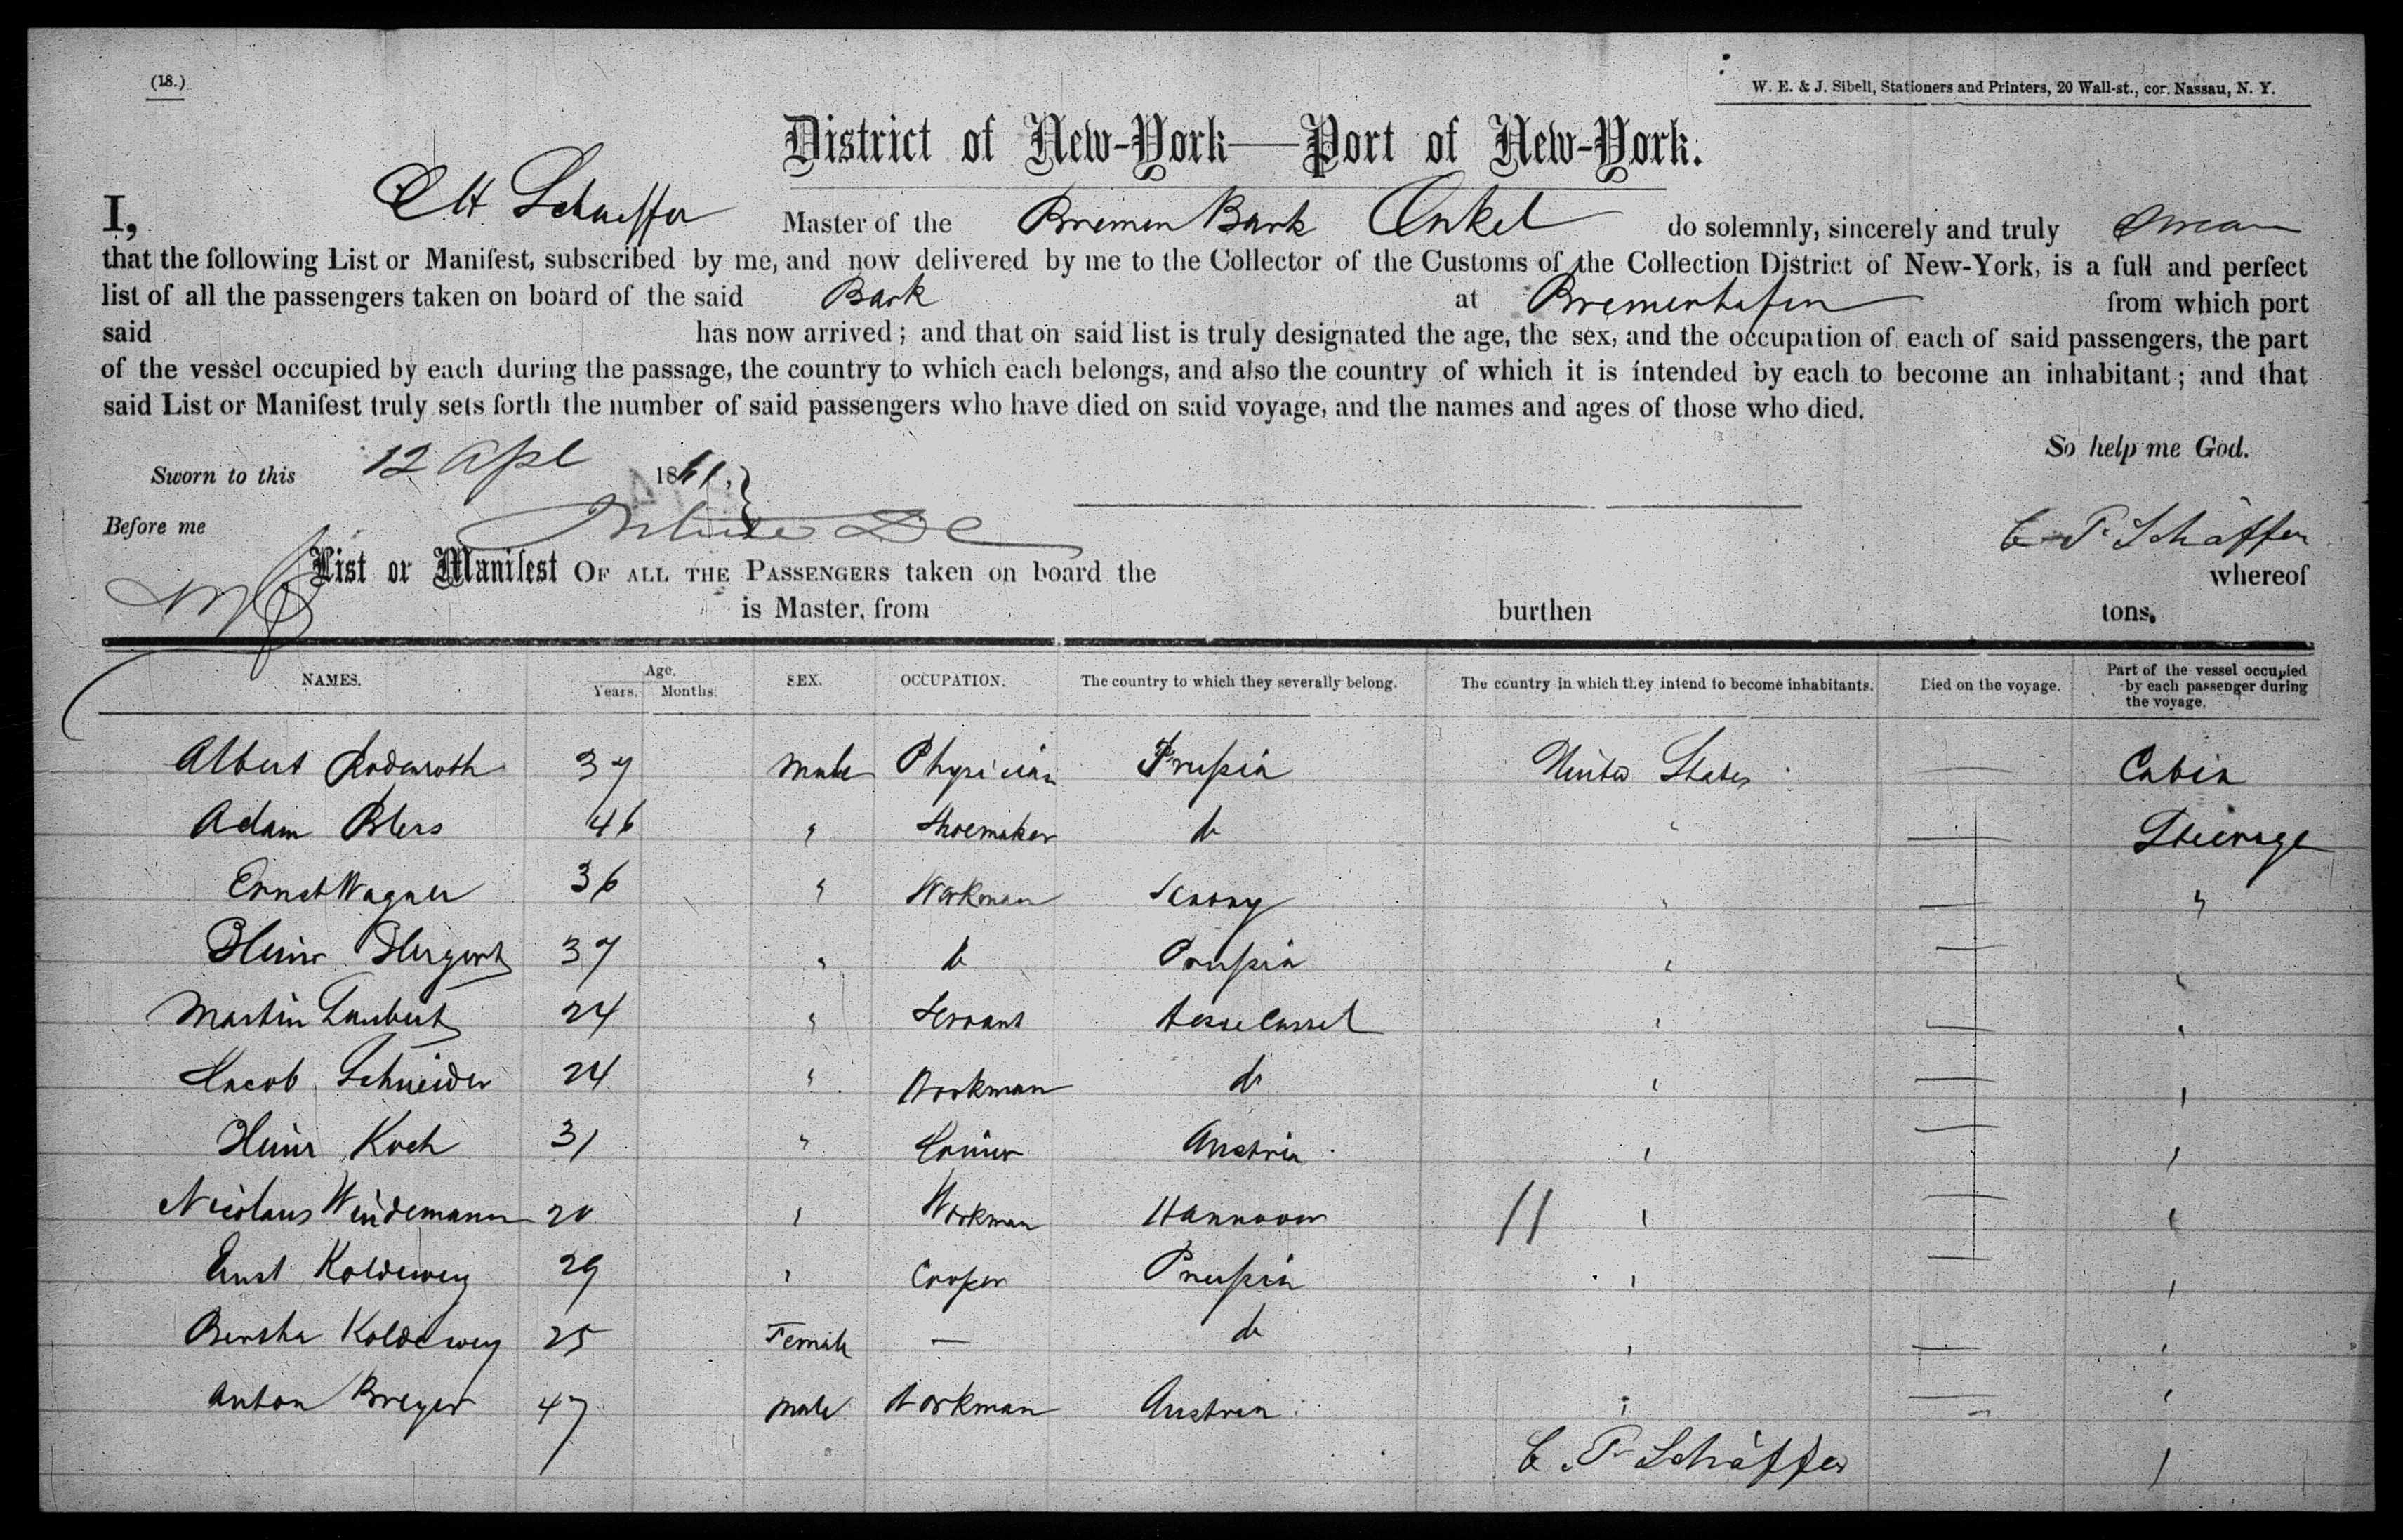 (18.)
W. E. & J. Sibell, Stationers and Printers, 20 Wall-st., cor. Nassau, N. Y.
District of New-York—Port of New-York.
I, Schaeffer Master of the Bremen Bark Onkel do solemnly, sincerely and truly swear
that the following List or Manifest, subscribed by me, and now delivered by me to the Collector of the Customs of the Collection District of New-York, is a full and perfect
list of all the passengers taken on board of the said Bark at Bremerhafen from which port
said has now arrived; and that on said list is truly designated the age, the sex, and the occupation of each of said passengers, the part
of the vessel occupied by each during the passage, the country to which each belongs, and also the country of which it is intended by each to become an inhabitant; and that
said List or Manifest truly sets forth the number of said passengers who have died on said voyage, and the names and ages of those who died.
So help me God.
Sworn to this 12 Apl 1861,
Before me
C P Schäffer
List or Manifest OF ALL THE PASSENGERS taken on board the whereof
is Master, from burthen tons.
NAMES. Age. Years. Months. SEX. OCCUPATION. The country to which they severally belong. The country in which they intend to become inhabitants. Died on the voyage. Part of the vessel occupied by each passenger during the voyage.
Albert Rodenroth 37 Male Physician Prussia United States — Cabin
Adam 46 " Shoemaker do " — Steerage
Ernst Wagner 36 " Workman Saxony " — "
Heinr Hergert 37 " do Prussia " — "
Martin Laubert 24 " Servant Hesse Cassel " — "
Jacob Schneider 24 " Workman do " — "
Heinr Koch 31 " Joiner Austria " — "
Nicolaus Weidemann 20 " Workman Hannover 11 " — "
Ernst Koldewey 29 " Cooper Prussia " — "
Bertha Koldewey 25 Female — do " — "
Anton Breyer 47 Male Workman Austria " — "
C. P. Schäffer "